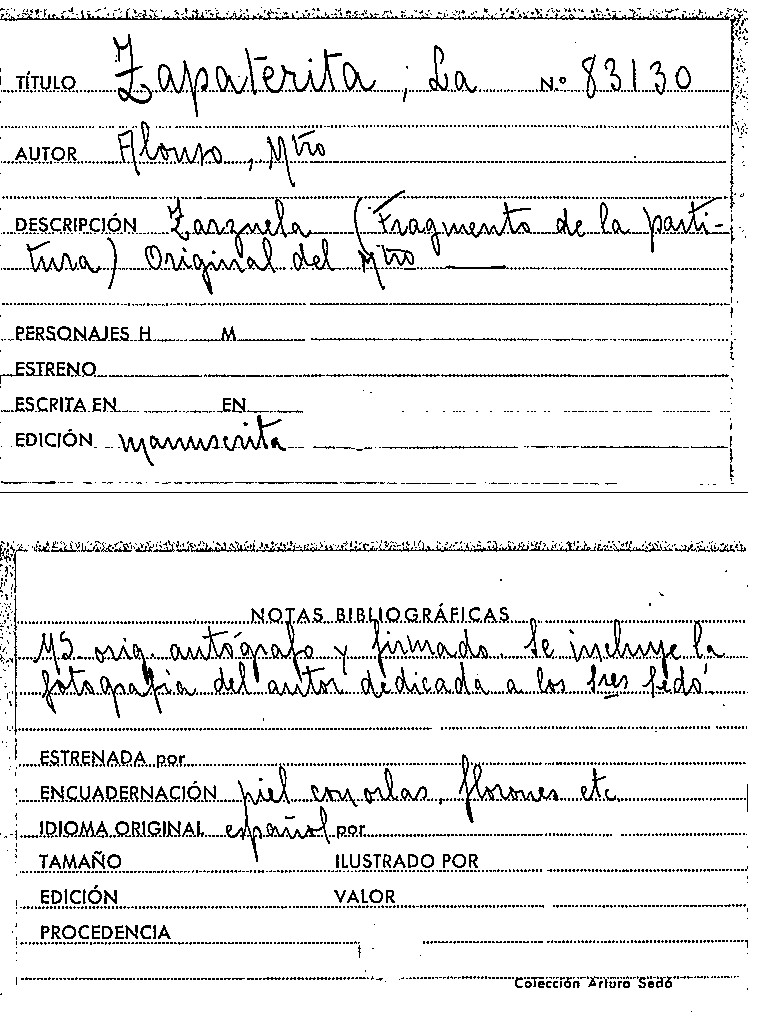 TÍTULO Zapaterita, La N.º 83130
AUTOR Alonso, Mtro
DESCRIPCIÓN Zarzuela (Fragmento de la parti-
tura) Original del Mtro
PERSONAJES H M
ESTRENO
ESCRITA EN EN
EDICIÓN manuscrita
NOTAS BIBLIOGRÁFICAS
MS. orig. autógrafo y firmado. Se incluye la
fotografía del autor dedicada a los Sres Sedó.
ESTRENADA por
ENCUADERNACIÓN piel con orlas, florones etc
IDIOMA ORIGINAL español por
TAMAÑO ILUSTRADO POR
EDICIÓN VALOR
PROCEDENCIA
Colección Arturo Sedó